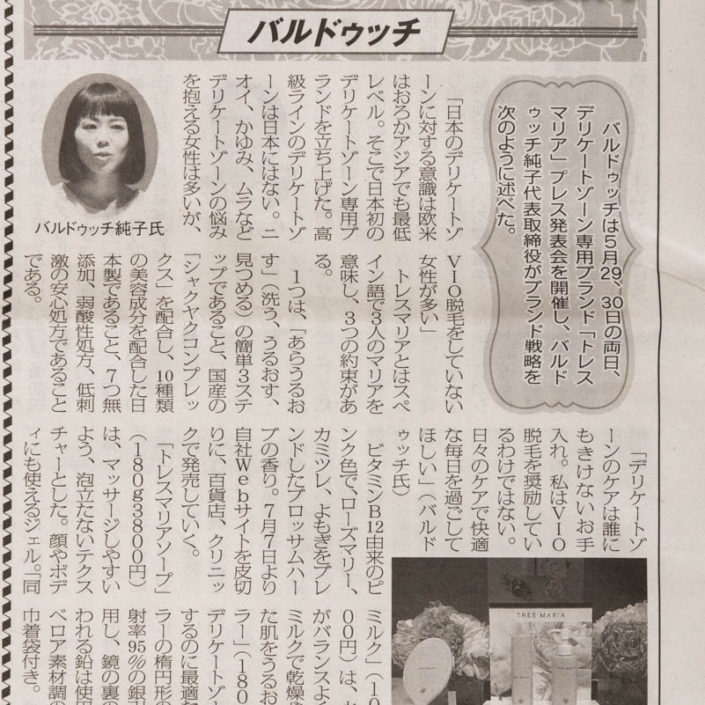 バルドゥッチ
バルドゥッチは5月29、30日の両日、
デリケートゾーン専用ブランド「トレス
マリア」プレス発表会を開催し、バルド
ゥッチ純子代表取締役がブランド戦略を
次のように述べた。
「日本のデリケートゾ
ーンに対する意識は欧米
はおろかアジアでも最低
レベル。そこで日本初の
デリケートゾーン専用ブ
ランドを立ち上げた。高
級ラインのデリケートゾ
ーンは日本にはない。ニ
オイ、かゆみ、ムラなど
デリケートゾーンの悩み
を抱える女性は多いが、
バルドゥッチ純子氏
VIO脱毛をしていない
女性が多い」
トレスマリアとはスペ
イン語で3人のマリアを
意味し、3つの約束があ
る。
1つは、「あらうるお
す」(洗う、うるおす、
見つめる)の簡単3ステ
ップであること、国産の
「シャクヤクコンプレッ
クス」を配合し、10種類
の美容成分を配合した日
本製であること、7つ無
添加、弱酸性処方、低刺
激の安心処方であること
である。
「デリケートゾ
ーンのケアは誰に
もきけないお手
入れ。私はVIO
脱毛を奨励してい
るわけではない。
日々のケアで快適
な毎日を過ごして
ほしい」(バルド
ゥッチ氏)
ビタミンB12由来のピ
ンク色で、ローズマリー、
カミツレ、よもぎをブレ
ンドしたブロッサムハー
ブの香り。7月7日より
自社Webサイトを皮切
りに、百貨店、クリニッ
クで発売していく。
「トレスマリアソープ」
(180g3800円)
は、マッサージしやすい
よう、泡立たないテクス
チャーとした。顔やボデ
ィにも使えるジェル。「同
TRES MARIA
ミルク」(10
00円)は、
がバランスよく
ミルクで乾燥
た肌をうるお
ラー」(180
デリケートゾ
するのに最適な
ラーの楕円形の
射率95%の銀
用し、鏡の裏の
われる鉛は使用
ベロア素材調の
巾着袋付き。